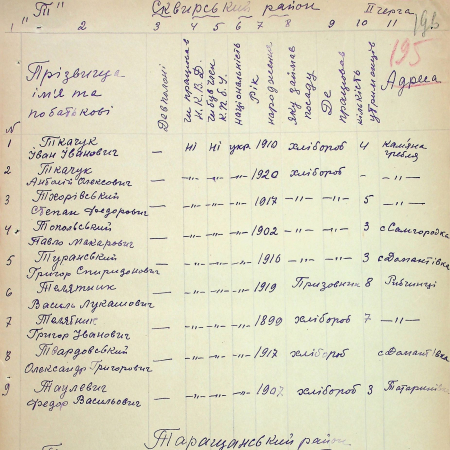 "Т" Сквирський район ІІ черга 195
1 2 3 4 5 6 7 8 9 10 11
195
№ Прізвище ім'я та побатькові Де в полоні чи працював Н.К.В.Д. чи був член К.П.б.У. національність Рік народження яку займав посаду Де працював кількість утриманців Адреса
1 Ткачук Іван Іванович — ні ні укр 1910 хлібороб 4 Кам'яна гребля
2 Ткачук Антоній Олексович — -"- -"- -"- 1920 хлібороб - -"-
3 Тхорівський Степан Федорович — -"- -"- -"- 1917 -"- -"- 5 -"-
4 Топольський Павло Макарович — -"- -"- -"- 1902 -"- -"- 3 с Самгородка
5 Туранський Григор Спиридонович — -"- -"- -"- 1916 -"- -"- 3 с Домантівка
6 Телятник Василь Лукашович — -"- -"- -"- 1919 Призовник 8 Рибчинці
7 Телятник Григор Іванович — -"- -"- -"- 1899 хлібороб 7 -"-
8 Твардовський Олександр Григорович — -"- -"- -"- 1917 хлібороб с Домантівка
9 Таулевич Федор Васильович — -"- -"- -"- 1907 хлібороб 3
Таращанський район